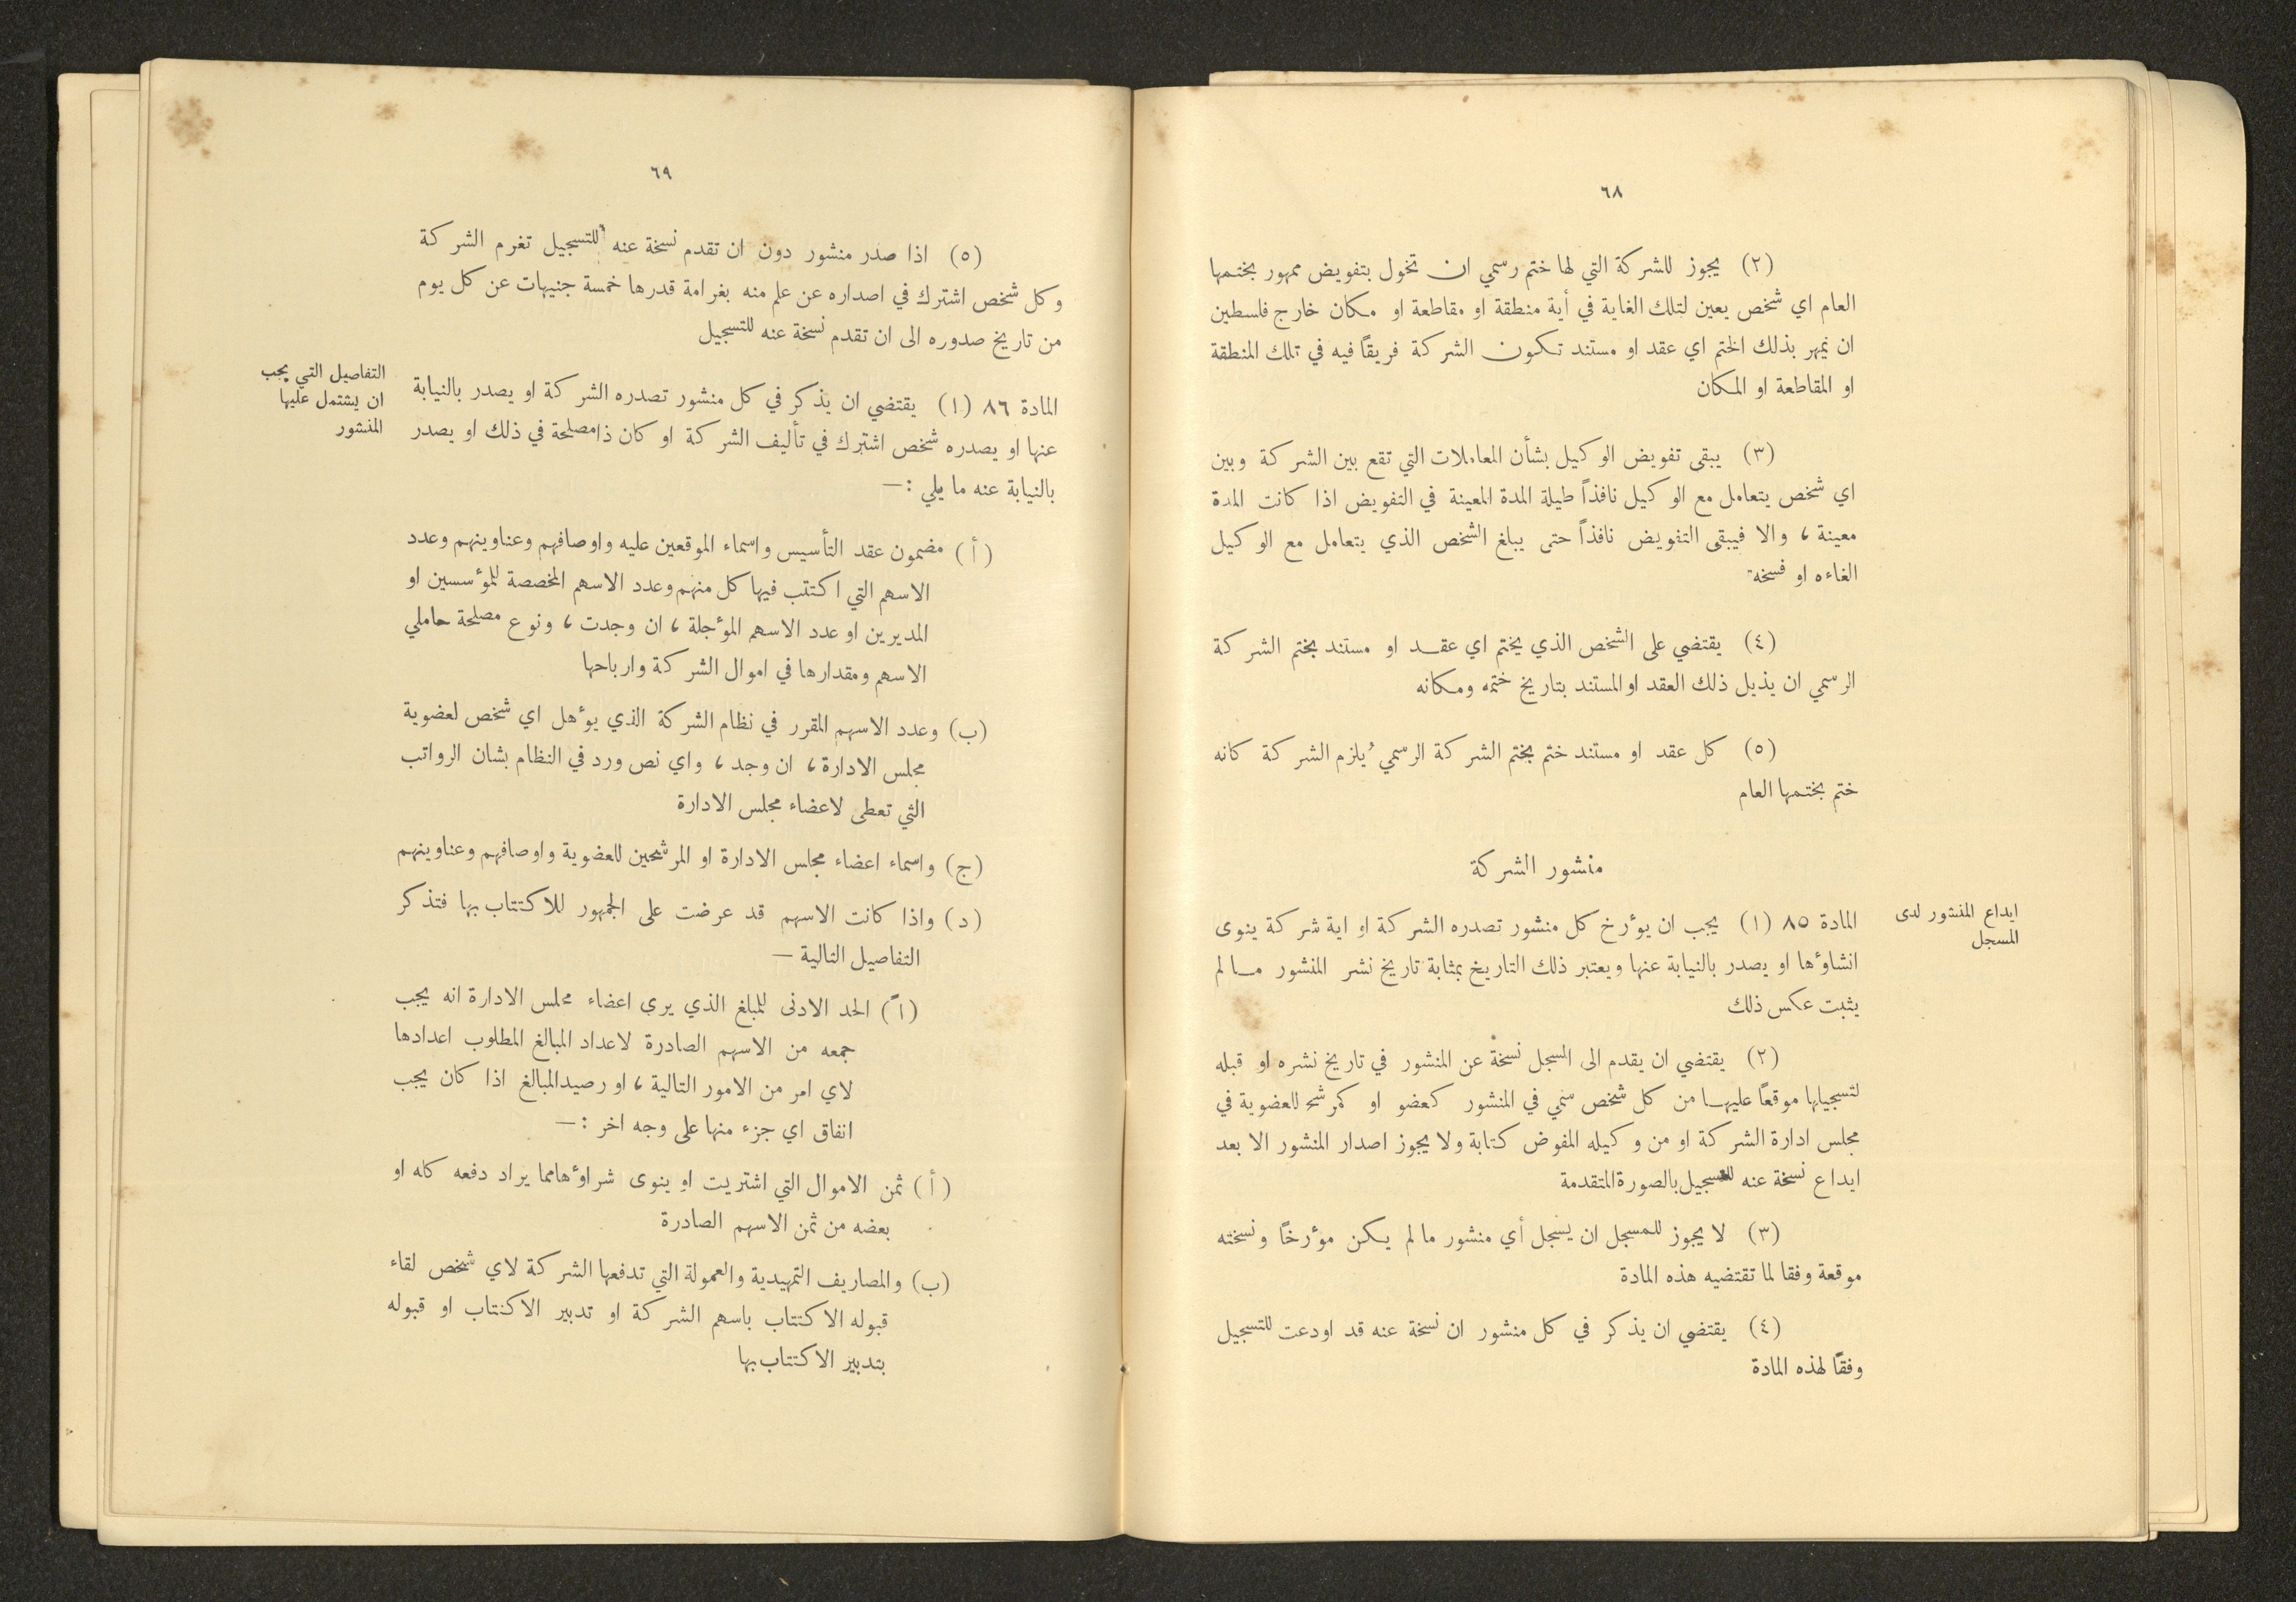 ٦٨
(٢) يجوز للشركة التي لها ختم رسمي ان تخول بتفويض ممهور بختمها
العام اي شخص يعين لتلك الغاية في أية منطقة او مقاطعة او مكان خارج فلسطين
ان يمهر بذلك الختم اي عقد او مستند تكون الشركة فريقاً فيه في تلك المنطقة
او المقاطعة او المكان
(٣) يبقى تفويض الوكيل بشأن المعاملات التي تقع بين الشركة وبين
اي شخص يتعامل مع الوكيل نافذاً طيلة المدة المعينة في التفويض اذا كانت المدة
معينة ، والا فيبقى التفويض نافذاً حتى يبلغ الشخص الذي يتعامل مع الوكيل
الغاءه او فسخه
(٤) يقتضي على الشخص الذي يختم اي عقد او مستند بختم الشركة
الرسمي ان يذيل ذلك العقد او المستند بتاريخ ختمه ومكانه
(٥) كل عقد او مستند ختم بختم الشركة الرسمي يُلزم الشركة كانه
ختم بختمها العام
منشور الشركة
ايداع المنشور لدى
المسجل
المادة ٨٥ (١) يجب ان يؤرخ كل منشور تصدره الشركة او اية شركة ينوى
انشاؤها او يصدر بالنيابة عنها ويعتبر ذلك التاريخ بمثابة تاريخ نشر المنشور ما لم
يثبت عكس ذلك
(٢) يقتضي ان يقدم الى المسجل نسخة عن المنشور في تاريخ نشره او قبله
لتسجيلها موقعاً عليها من كل شخص سمي في المنشور كعضو او كمرشح للعضوية في
مجلس ادارة الشركة او من وكيله المفوض كتابة ولا يجوز اصدار المنشور الا بعد
ايداع نسخة عنه للتسجيل بالصورة المتقدمة
(٣) لا يجوز للمسجل ان يسجل أي منشور ما لم يكن مؤرخاً ونسخته
موقعة وفقا لما تقتضيه هذه المادة
(٤) يقتضي ان يذكر في كل منشور ان نسخة عنه قد اودعت للتسجيل
وفقاً لهذه المادة
٦٩
(٥) اذا صدر منشور دون ان تقدم نسخة عنه للتسجيل تغرم الشركة
وكل شخص اشترك في اصداره عن علم منه بغرامة قدرها خمسة جنيهات عن كل يوم
من تاريخ صدوره الى ان تقدم نسخة عنه للتسجيل
التفاصيل التي يجب
ان يشتمل عليها
المنشور
المادة ٨٦ (١) يقتضي ان يذكر في كل منشور تصدره الشركة او يصدر بالنيابة
عنها او يصدره شخص اشترك في تأليف الشركة او كان ذا مصلحة في ذلك او يصدر
بالنيابة عنه ما يلي :—
(أ) مضمون عقد التأسيس واسماء الموقعين عليه واوصافهم وعناوينهم وعدد
الاسهم التي اكتتب فيها كل منهم وعدد الاسهم المخصصة للمؤسسين او
المديرين او عدد الاسهم المؤجلة ، ان وجدت ، ونوع مصلحة حاملي
الاسهم ومقدارها في اموال الشركة وارباحها
(ب) وعدد الاسهم المقرر في نظام الشركة الذي يؤهل اي شخص لعضوية
مجلس الادارة ، ان وجد ، واي نص ورد في النظام بشان الرواتب
التي تعطى لاعضاء مجلس الادارة
(ج) واسماء اعضاء مجلس الادارة او المرشحين للعضوية واوصافهم وعناوينهم
(د) واذا كانت الاسهم قد عرضت على الجمهور للاكتتاب بها فتذكر
التفاصيل التالية —
(١ً) الحد الادنى للمبلغ الذي يرى اعضاء مجلس الادارة انه يجب
جمعه من الاسهم الصادرة لاعداد المبالغ المطلوب اعدادها
لاي امر من الامور التالية ، او رصيد المبالغ اذا كان يجب
انفاق اي جزء منها على وجه اخر :—
(أ) ثمن الاموال التي اشتريت او ينوى شراؤها مما يراد دفعه كله او
بعضه من ثمن الاسهم الصادرة
(ب) والمصاريف التمهيدية والعمولة التي تدفعها الشركة لاي شخص لقاء
قبوله الاكتتاب باسهم الشركة او تدبير الاكتتاب او قبوله
بتدبير الاكتتاب بها